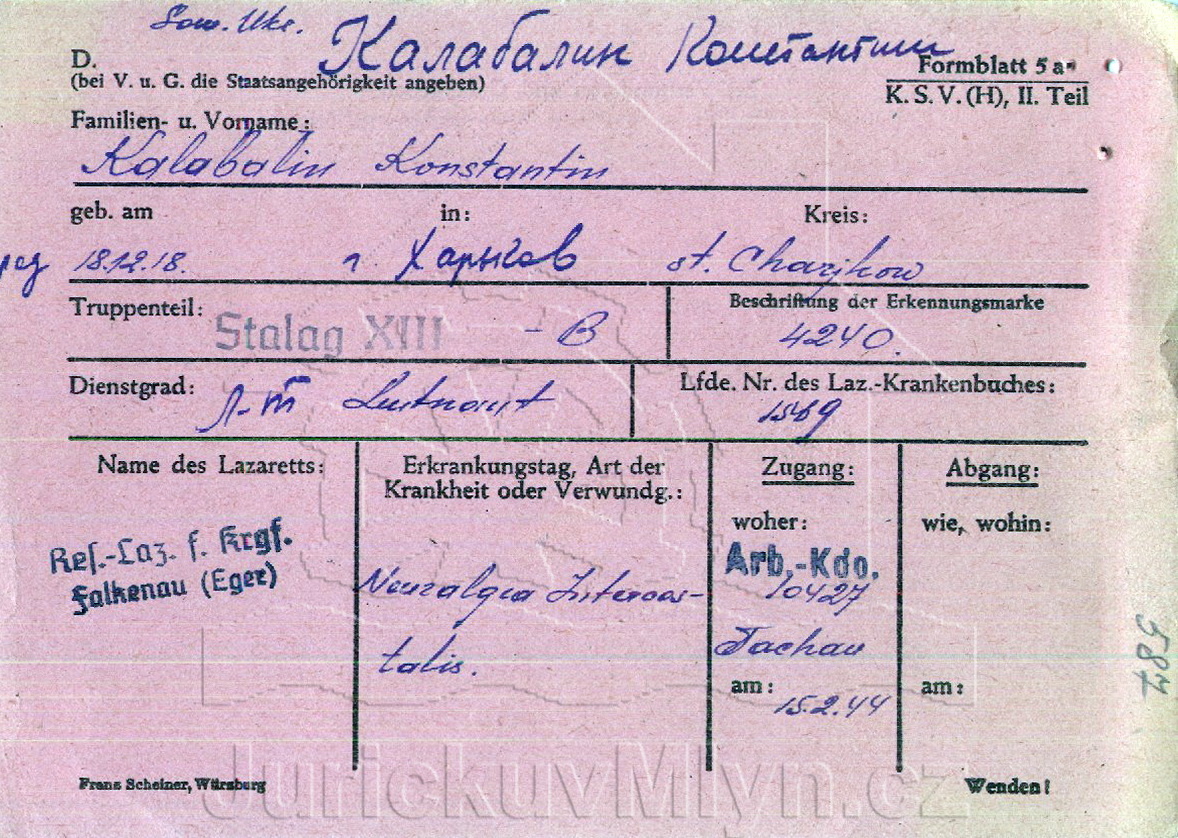 Sow. Ukr. Калабалин Константин
D.
(bei V. u. G. die Staatsangehörigkeit angeben)
Formblatt 5 a
K. S. V. (H), II. Teil
Familien- u. Vorname:
Kalabalin Konstantin
geb. am in: Kreis:
18.12.18. г Харьков st. Charjkow
Truppenteil: Stalag XIII - B
Beschriftung der Erkennungsmarke
4240.
Dienstgrad: Л-т Leutnant
Lfde. Nr. des Laz.-Krankenbuches:
1569
Name des Lazaretts:
Res.-Laz. f. Krgf.
Falkenau (Eger)
Erkrankungstag, Art der
Krankheit oder Verwundg.:
Neuralgea Intercos-
talis.
Zugang:
woher:
Arb.-Kdo.
10427
Tachau
am:
15.2.44
Abgang:
wie, wohin:
am:
587
Franz Scheiner, Würzburg
Wenden!
JurickuvMlyn.cz